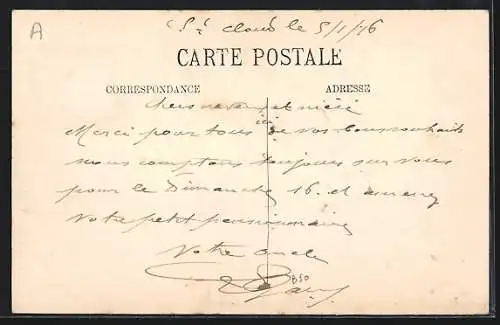 A
St Cloud le 5/1/16
CARTE POSTALE
CORRESPONDANCE
ADRESSE
Chers neveu et nièce
ici
Merci pour tous de vos bons souhaits
nous comptons toujours sur vous
pour le Dimanche 16. et amenez
votre petit pensionnaire
Votre oncle
850